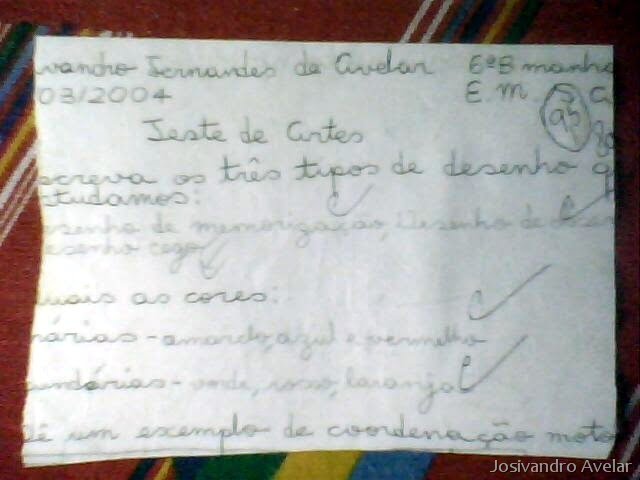 vandro Fernandes de Avelar 6ªB manhã
03/2004 E. M.
95
Teste de Artes
screva os três tipos de desenho q
studamos:
senho de memorização, Desenho de
esenho cego
uais as cores:
márias - amarelo, azul e vermelho
undárias - verde, roxo, laranja
Dê um exemplo de coordenação moto
Josivandro Avelar